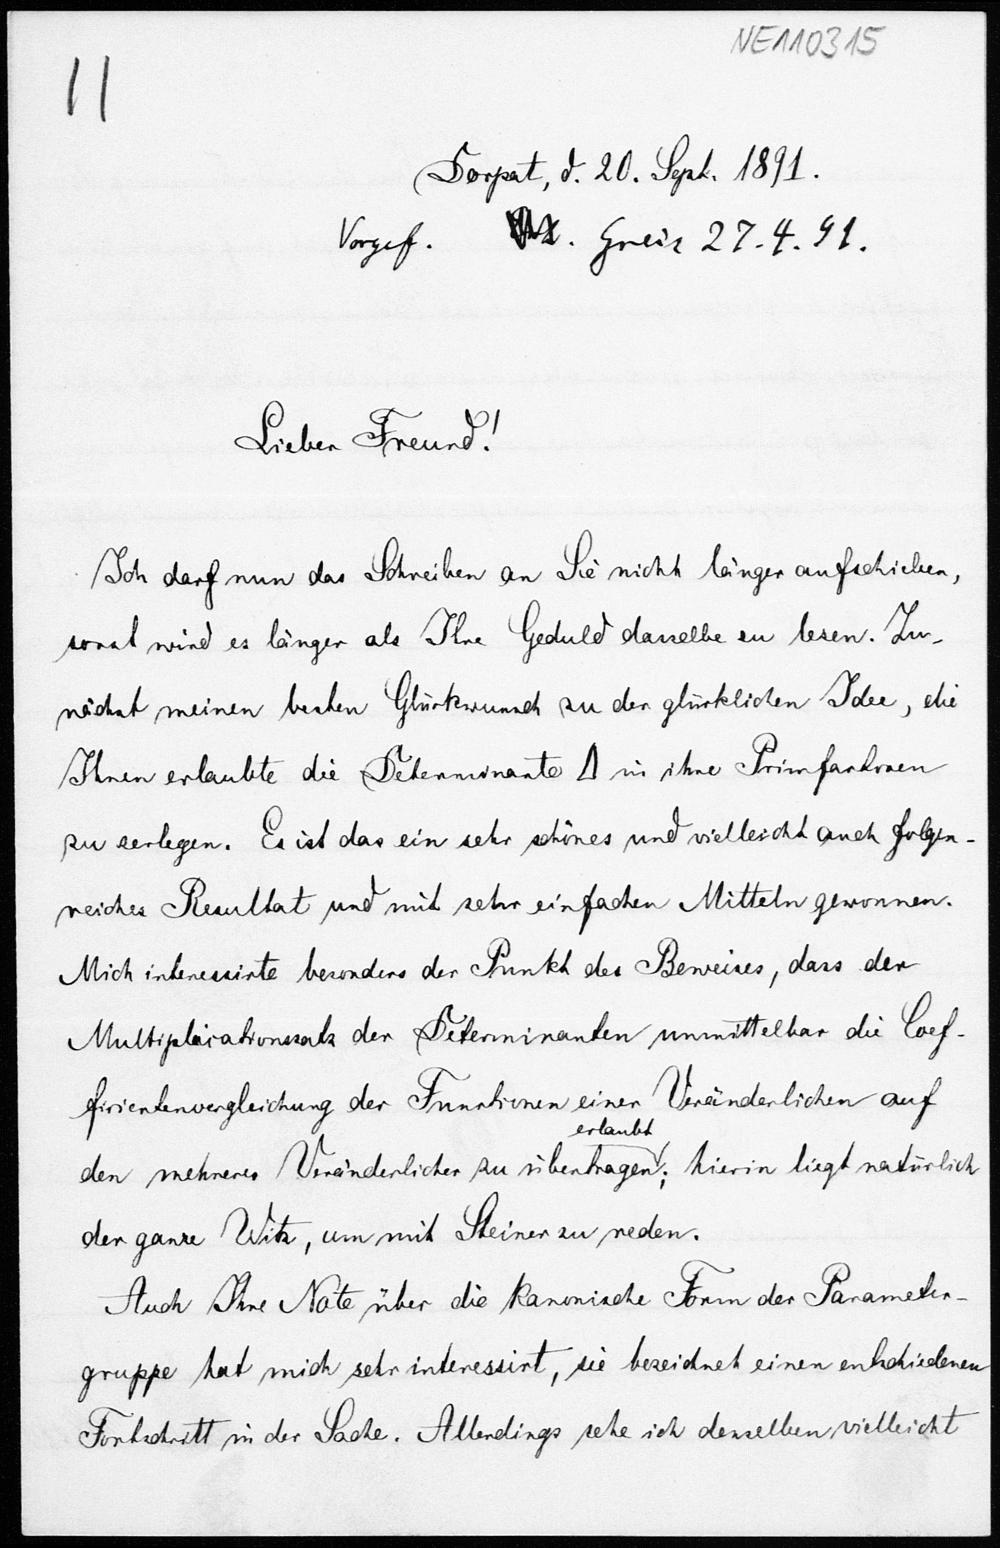 NE110315
11
Dorpat, d. 20. Sept. 1891.
Vorgef. Greiz 27.4.91.
Lieber Freund!
Ich darf nun das Schreiben an Sie nicht länger aufschieben,
sonst wird es länger als Ihre Geduld dasselbe zu lesen. Zu-
nächst meinen besten Glückwunsch zu der glücklichen Idee, die
Ihnen erlaubte die Determinante Δ in ihre Primfactoren
zu zerlegen. Es ist das ein sehr schönes und vielleicht auch folgen-
reiches Resultat und mit sehr einfachen Mitteln gewonnen.
Mich interessirte besonders der Punkt des Beweises, dass der
Multiplicationssatz der Determinanten unmittelbar die Coef-
ficientenvergleichung der Functionen einer Veränderlichen auf
den mehrerer Veränderlicher zu übertragen erlaubt; hierin liegt natürlich
der ganze Witz, um mit Steiner zu reden.
Auch Ihre Note über die kanonische Form der Parameter-
gruppe hat mich sehr interessirt, sie bezeichnet einen entschiedenen
Fortschritt in der Sache. Allerdings sehe ich denselben vielleicht